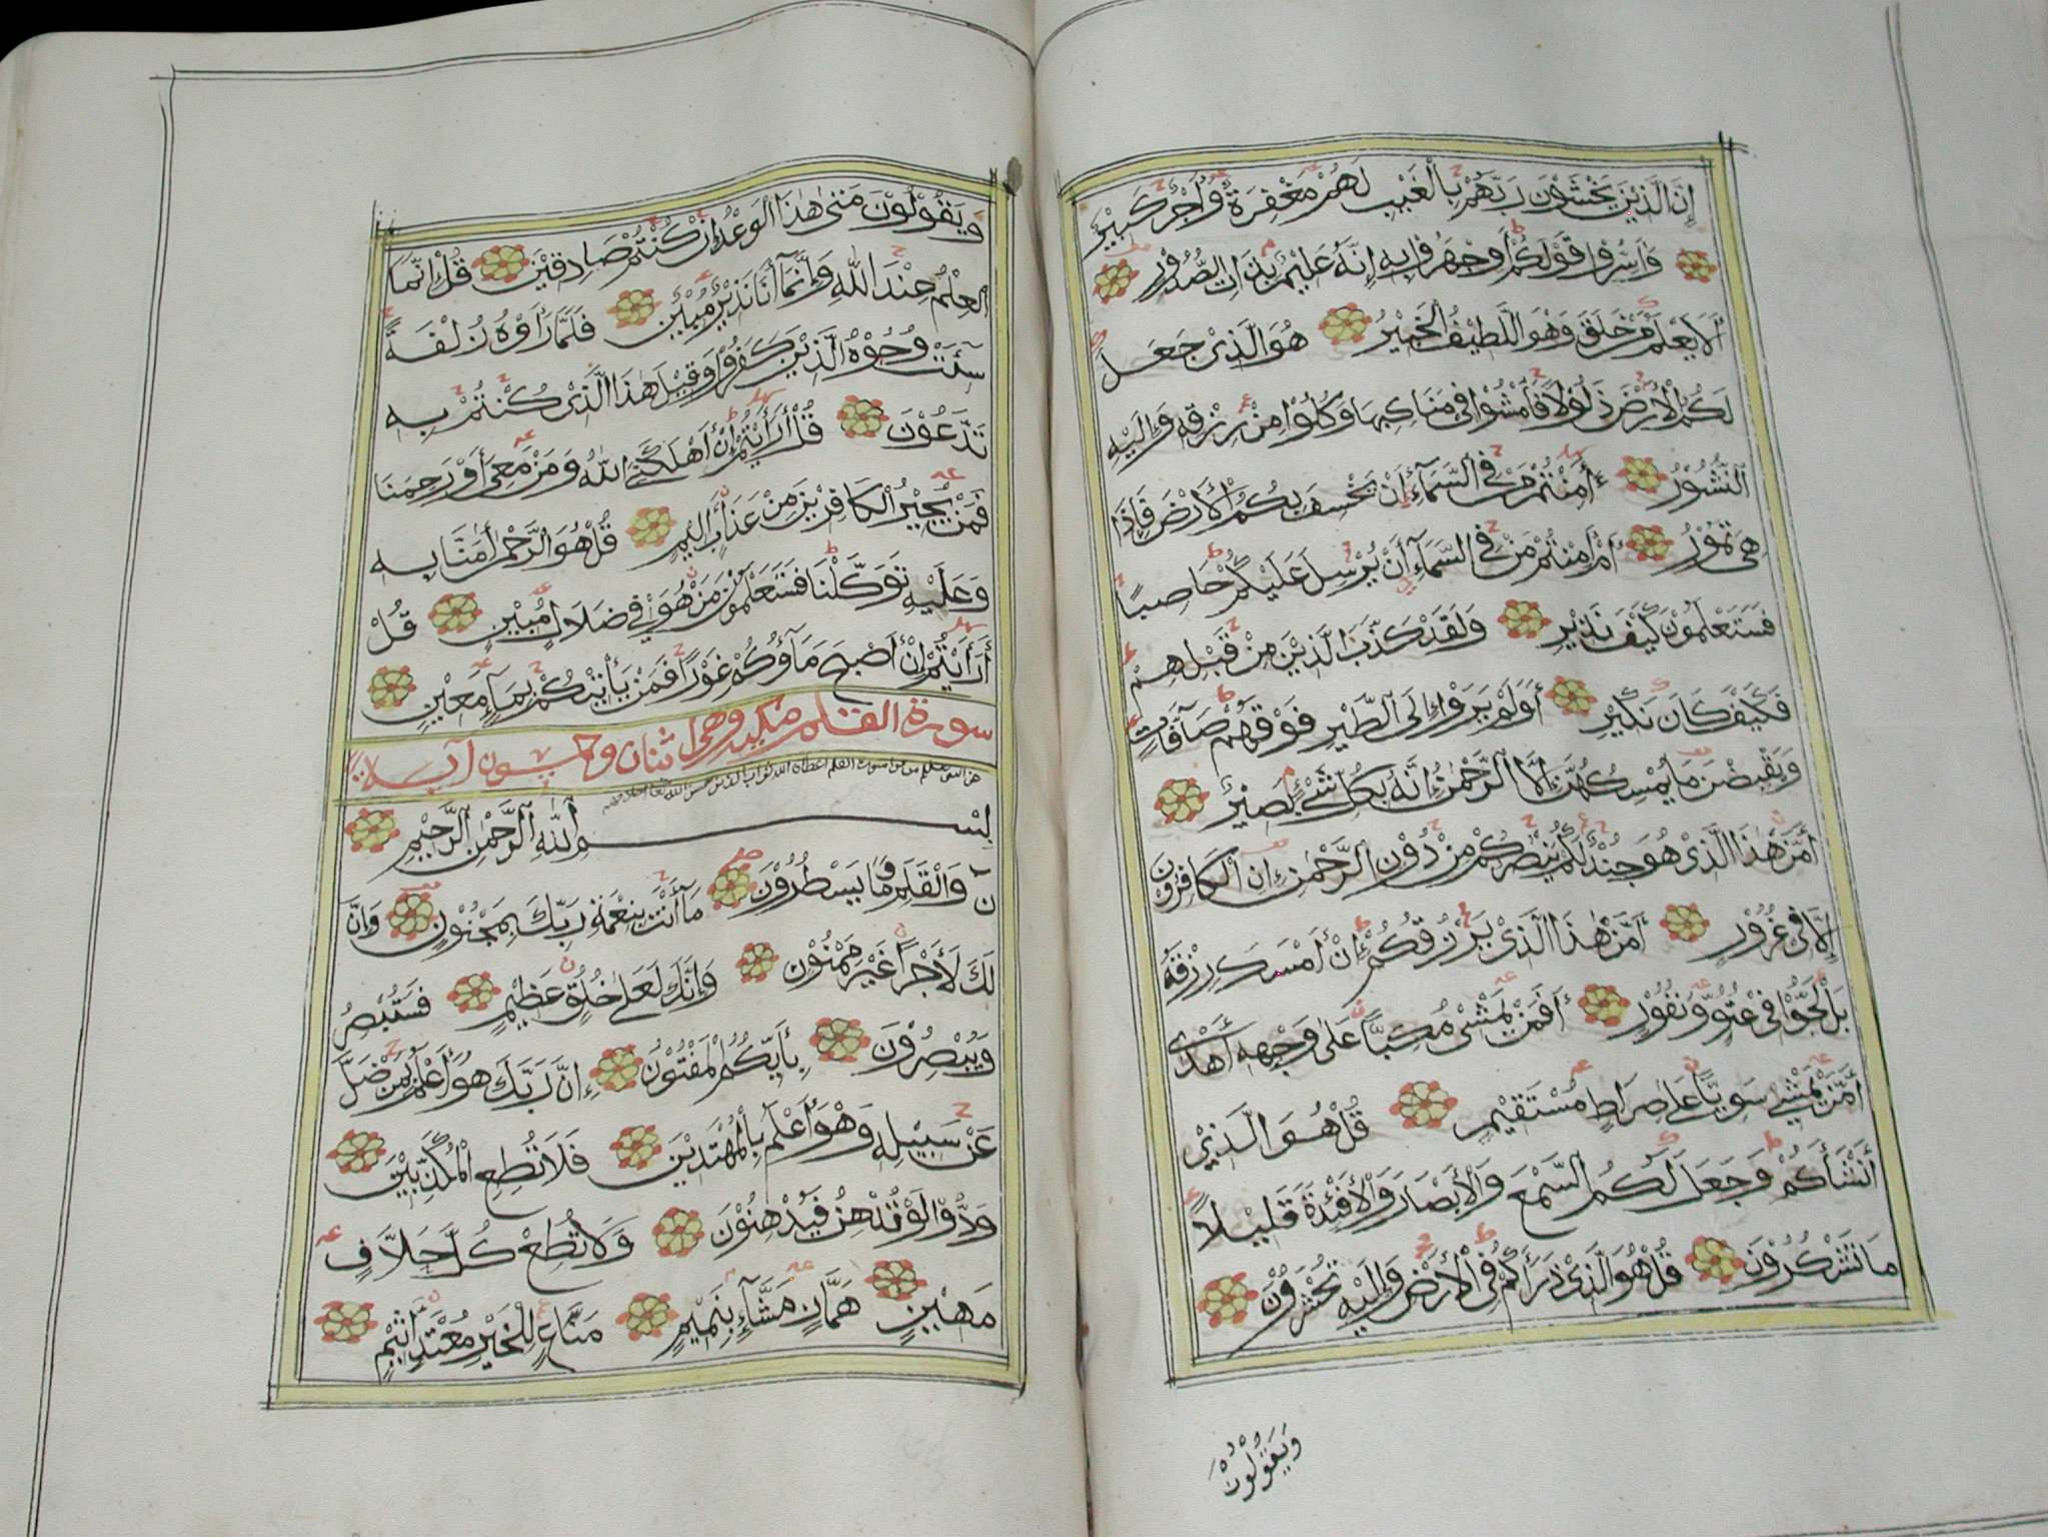 إِنَّ الَّذِيْنَ يَخْشَوْنَ رَبَّهُمْ بِالْغَيْبِ لَهُمْ مَغْفِرَةٌ وَأَجْرٌ كَبِيْرٌ
وَأَسِرُّوْا قَوْلَكُمْ أَوِ اجْهَرُوْا بِهِ إِنَّهُ عَلِيْمٌ بِذَاتِ الصُّدُوْرِ
أَلَا يَعْلَمُ مَنْ خَلَقَ وَهْوَ اللَّطِيْفُ الْخَبِيْرُ هُوَ الَّذِيْ جَعَلَ
لَكُمُ الْأَرْضَ ذَلُوْلًا فَامْشُوْا فِي مَنَاكِبِهَا وَكُلُوْا مِنْ رِزْقِهِ وَإِلَيْهِ
النُّشُوْرُ ءَأَمِنْتُمْ مَنْ فِي السَّمَآءِ أَنْ يَخْسِفَ بِكُمُ الْأَرْضَ فَإِذَا
هِيَ تَمُوْرُ أَمْ أَمِنْتُمْ مَنْ فِي السَّمَآءِ أَنْ يُرْسِلَ عَلَيْكُمْ حَاصِبًا
فَسَتَعْلَمُوْنَ كَيْفَ نَذِيْرِ وَلَقَدْ كَذَّبَ الَّذِيْنَ مِنْ قَبْلِهِمْ
فَكَيْفَ كَانَ نَكِيْرِ أَوَلَمْ يَرَوْا إِلَى الطَّيْرِ فَوْقَهُمْ صَآفَّاتٍ
وَيَقْبِضْنَ مَا يُمْسِكُهُنَّ إِلَّا الرَّحْمٰنُ إِنَّهُ بِكُلِّ شَيْءٍ بَصِيْرٌ
أَمَّنْ هٰذَا الَّذِيْ هُوَ جُنْدٌ لَكُمْ يَنْصُرُكُمْ مِنْ دُوْنِ الرَّحْمٰنِ إِنِ الْكَافِرُوْنَ
إِلَّا فِي غُرُوْرٍ أَمَّنْ هٰذَا الَّذِيْ يَرْزُقُكُمْ إِنْ أَمْسَكَ رِزْقَهُ
بَلْ لَجُّوْا فِي عُتُوٍّ وَنُفُوْرٍ أَفَمَنْ يَمْشِيْ مُكِبًّا عَلَى وَجْهِهِ أَهْدَى
أَمَّنْ يَمْشِيْ سَوِيًّا عَلَى صِرَاطٍ مُسْتَقِيْمٍ قُلْ هُوَ الَّذِيْ
أَنْشَأَكُمْ وَجَعَلَ لَكُمُ السَّمْعَ وَالْأَبْصَارَ وَالْأَفْئِدَةَ قَلِيْلًا
مَا تَشْكُرُوْنَ قُلْ هُوَ الَّذِيْ ذَرَأَكُمْ فِي الْأَرْضِ وَإِلَيْهِ تُحْشَرُوْنَ
وَيَقُوْلُوْنَ
وَيَقُوْلُوْنَ مَتٰى هٰذَا الْوَعْدُ إِنْ كُنْتُمْ صَادِقِيْنَ قُلْ إِنَّمَا
الْعِلْمُ عِنْدَ اللهِ وَإِنَّمَآ أَنَا نَذِيْرٌ مُبِيْنٌ فَلَمَّا رَأَوْهُ زُلْفَةً
سِيْئَتْ وُجُوْهُ الَّذِيْنَ كَفَرُوْا وَقِيْلَ هٰذَا الَّذِيْ كُنْتُمْ بِهِ
تَدَّعُوْنَ قُلْ أَرَأَيْتُمْ إِنْ أَهْلَكَنِيَ اللهُ وَمَنْ مَعِيَ أَوْ رَحِمَنَا
فَمَنْ يُجِيْرُ الْكَافِرِيْنَ مِنْ عَذَابٍ أَلِيْمٍ قُلْ هُوَ الرَّحْمٰنُ اٰمَنَّا بِهِ
وَعَلَيْهِ تَوَكَّلْنَا فَسَتَعْلَمُوْنَ مَنْ هُوَ فِي ضَلَالٍ مُبِيْنٍ قُلْ
أَرَأَيْتُمْ إِنْ أَصْبَحَ مَآؤُكُمْ غَوْرًا فَمَنْ يَأْتِيْكُمْ بِمَآءٍ مَعِيْنٍ
سورة القلم مكية وهى اثنان وخمسون آية
بِسْمِ اللهِ الرَّحْمٰنِ الرَّحِيْمِ
نٓ وَالْقَلَمِ وَمَا يَسْطُرُوْنَ مَآ أَنْتَ بِنِعْمَةِ رَبِّكَ بِمَجْنُوْنٍ وَإِنَّ
لَكَ لَأَجْرًا غَيْرَ مَمْنُوْنٍ وَإِنَّكَ لَعَلَى خُلُقٍ عَظِيْمٍ فَسَتُبْصِرُ
وَيُبْصِرُوْنَ بِأَيِّكُمُ الْمَفْتُوْنُ إِنَّ رَبَّكَ هُوَ أَعْلَمُ بِمَنْ ضَلَّ
عَنْ سَبِيْلِهِ وَهْوَ أَعْلَمُ بِالْمُهْتَدِيْنَ فَلَا تُطِعِ الْمُكَذِّبِيْنَ
وَدُّوْا لَوْ تُدْهِنُ فَيُدْهِنُوْنَ وَلَا تُطِعْ كُلَّ حَلَّافٍ
مَهِيْنٍ هَمَّازٍ مَشَّآءٍ بِنَمِيْمٍ مَنَّاعٍ لِلْخَيْرِ مُعْتَدٍ أَثِيْمٍ